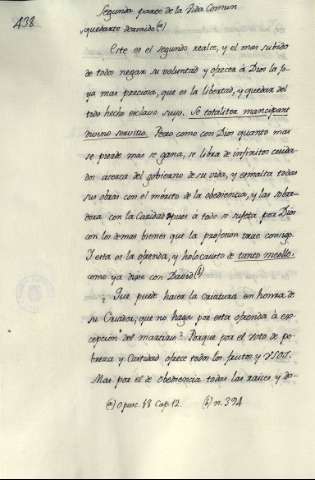 438.
Segunda parte de la Vida Comun
quedarse desnudo (a)
Este es el segundo realce, y el mas subido
de todos negar su voluntad y ofrecer á Dios la jo-
ya mas preciosa, que es la libertad, y quedar del
todo hecho esclavo suyo. Se totaliter mancipant
divino servitio. Pero como con Dios quanto mas
se pierde mas se gana, se libra de infinitos cuida-
dos acerca del gobierno de su vida, y esmalta todas
sus obras con el mérito de la obediencia, y las sobre-
dora con la Caridad pues á todo se sujeta por Dios
con los demas bienes que la profesion trae consigo.
Y esta es la ofrenda, y holocausto de tanto meollo,
como ya dixe con David (b)
¿Que puede hacer la criatura en honra de
su Criador, que no haga por esta ofrenda á ex-
cepcion del martirio? Porque por el voto de po-
breza y Castidad ofrece todos los frutos y usos.
Mas por el de obediencia todas las raices y do-
(a) Opusc. 18 Cap. 12. (b) n. 394